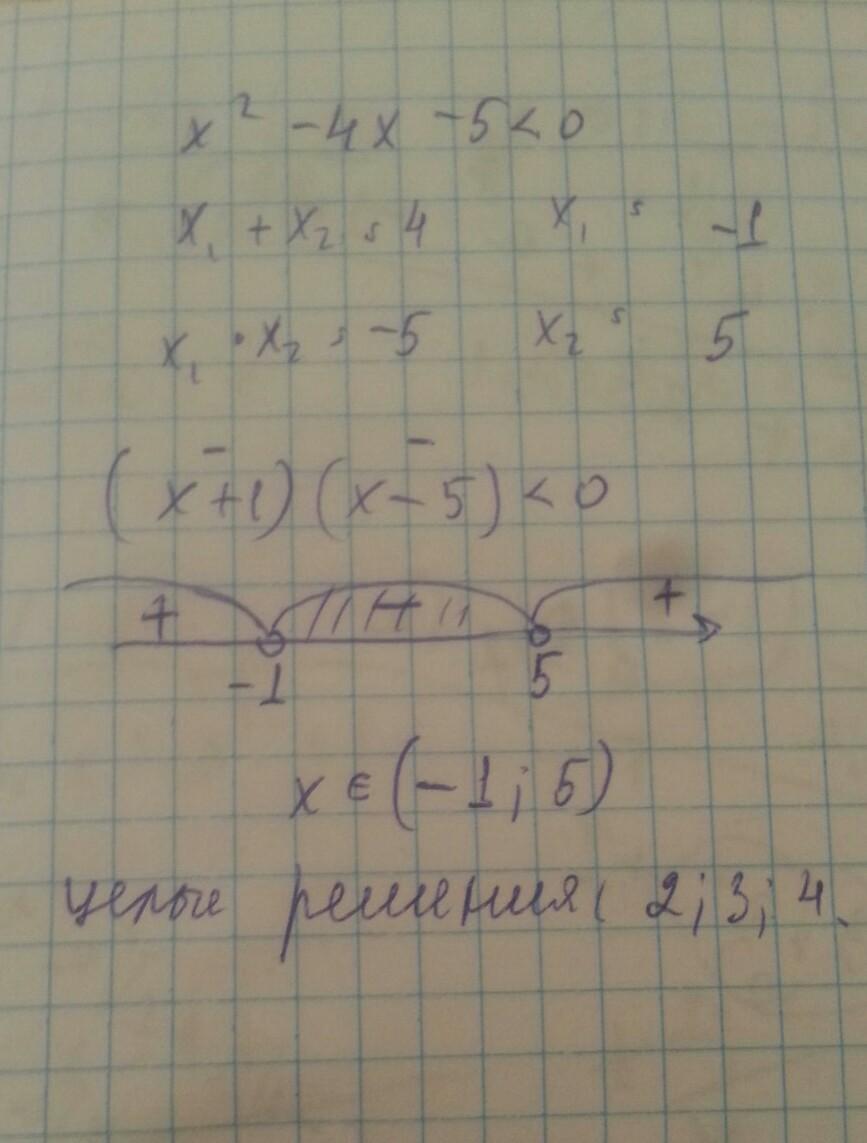 x² - 4x - 5 < 0
x₁ + x₂ = 4 x₁ = -1
x₁ · x₂ = -5 x₂ = 5
- -
(x+1)(x-5) < 0
+ - +
-1 5
x ∈ (-1; 5)
целые решения: 2; 3; 4.